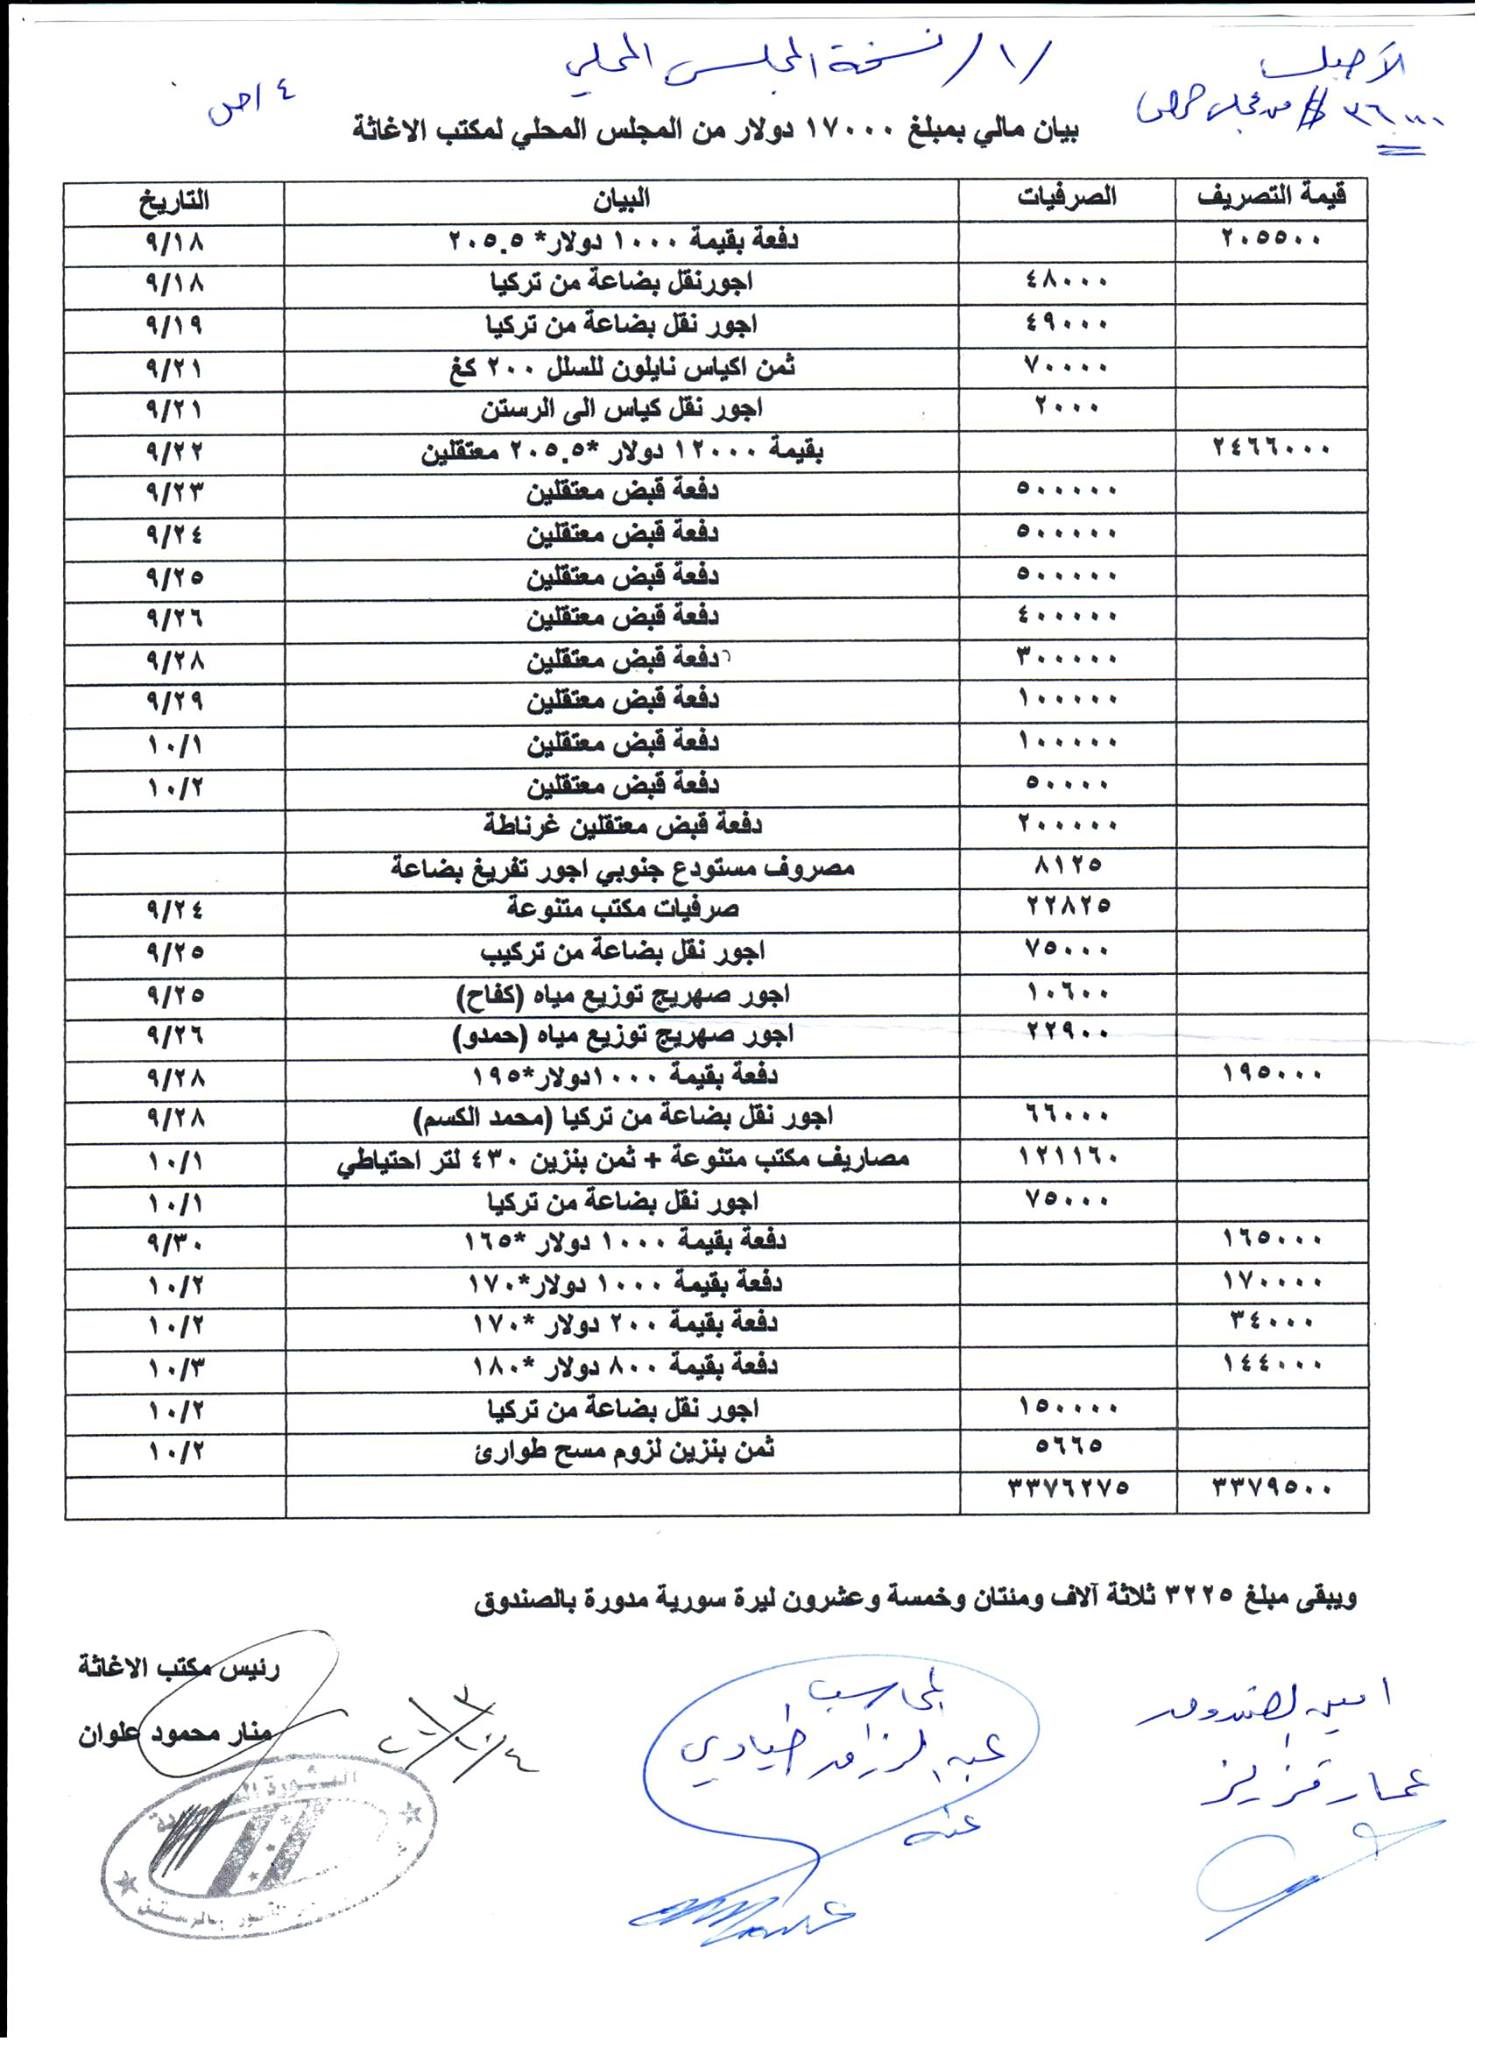 /١/ نسخة المجلس المحلي
الأصل
٣٦٠٠٠ $ من مجلس حمص
بيان مالي بمبلغ ١٧٠٠٠ دولار من المجلس المحلي لمكتب الاغاثة
قيمة التصريف الصرفيات البيان التاريخ
٢٠٥٥٠٠ دفعة بقيمة ١٠٠٠ دولار* ٢٠٥.٥ ٩/١٨
٤٨٠٠٠ اجورنقل بضاعة من تركيا ٩/١٨
٤٩٠٠٠ اجور نقل بضاعة من تركيا ٩/١٩
٧٠٠٠٠ ثمن اكياس نايلون للسلل ٢٠٠ كغ ٩/٢١
٢٠٠٠ اجور نقل كياس الى الرستن ٩/٢١
٢٤٦٦٠٠٠ بقيمة ١٢٠٠٠ دولار *٢٠٥.٥ معتقلين ٩/٢٢
٥٠٠٠٠٠ دفعة قبض معتقلين ٩/٢٣
٥٠٠٠٠٠ دفعة قبض معتقلين ٩/٢٤
٥٠٠٠٠٠ دفعة قبض معتقلين ٩/٢٥
٤٠٠٠٠٠ دفعة قبض معتقلين ٩/٢٦
٣٠٠٠٠٠ دفعة قبض معتقلين ٩/٢٨
١٠٠٠٠٠ دفعة قبض معتقلين ٩/٢٩
١٠٠٠٠٠ دفعة قبض معتقلين ١٠/١
٥٠٠٠٠ دفعة قبض معتقلين ١٠/٢
٢٠٠٠٠٠ دفعة قبض معتقلين غرناطة
٨١٢٥ مصروف مستودع جنوبي اجور تفريغ بضاعة
٢٢٨٢٥ صرفيات مكتب متنوعة ٩/٢٤
٧٥٠٠٠ اجور نقل بضاعة من تركيب ٩/٢٥
١٠٦٠٠ اجور صهريج توزيع مياه (كفاح) ٩/٢٥
٢٢٩٠٠ اجور صهريج توزيع مياه (حمدو) ٩/٢٦
١٩٥٠٠٠ دفعة بقيمة ١٠٠٠دولار*١٩٥ ٩/٢٨
٦٦٠٠٠ اجور نقل بضاعة من تركيا (محمد الكسم) ٩/٢٨
١٢١١٦٠ مصاريف مكتب متنوعة + ثمن بنزين ٤٣٠ لتر احتياطي ١٠/١
٧٥٠٠٠ اجور نقل بضاعة من تركيا ١٠/١
١٦٥٠٠٠ دفعة بقيمة ١٠٠٠ دولار *١٦٥ ٩/٣٠
١٧٠٠٠٠ دفعة بقيمة ١٠٠٠ دولار*١٧٠ ١٠/٢
٣٤٠٠٠ دفعة بقيمة ٢٠٠ دولار *١٧٠ ١٠/٢
١٤٤٠٠٠ دفعة بقيمة ٨٠٠ دولار *١٨٠ ١٠/٣
١٥٠٠٠٠ اجور نقل بضاعة من تركيا ١٠/٢
٥٦٦٥ ثمن بنزين لزوم مسح طوارئ ١٠/٢
٣٣٧٩٥٠٠ ٣٣٧٦٢٧٥
ويبقى مبلغ ٣٢٢٥ ثلاثة آلاف ومئتان وخمسة وعشرون ليرة سورية مدورة بالصندوق
امين الصندوق المحاسب رئيس مكتب الاغاثة
عبد الرزاق منار محمود علوان
عمار
عنه